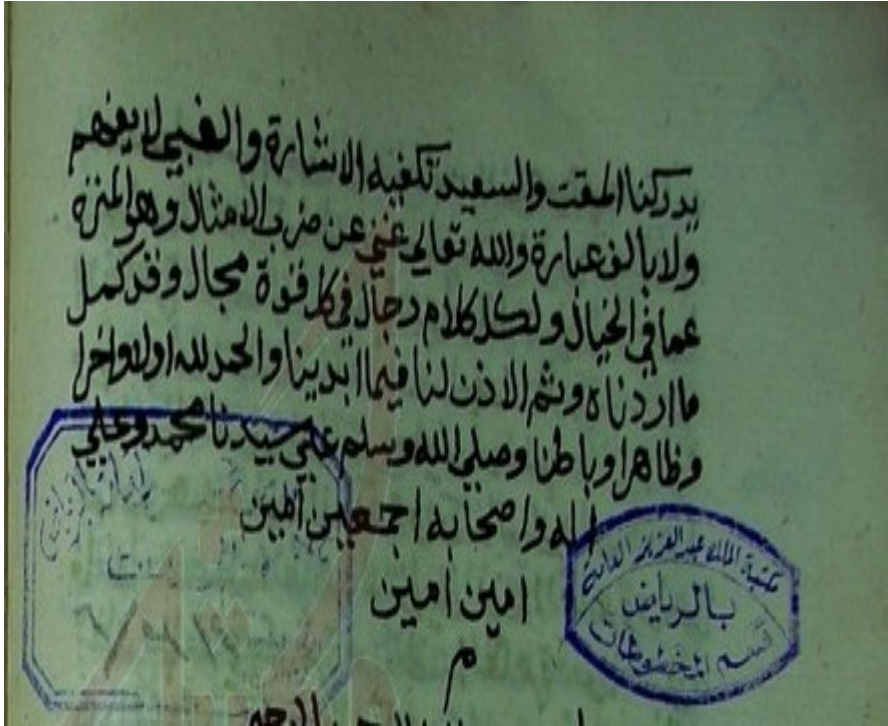 يدركنا المقت والسعيد تكفيه الاشارة والغبي لا يفهم
ولا بالف عبارة والله تعالي غني عن ضرب الامثال وهو المنزه
عما في الخيال ولكل كلام رجال في كل فتوة مجال وقد كمل
ما اردناه وتم الاذن لنا فيما ابدينا والحمد لله اولا واخرا
وظاهرا وباطنا وصلي الله وسلم علي سيدنا محمد وعلي
اله واصحابه اجمعين امين
امين امين
م
مكتبة الملك عبد العزيز العامة
بالرياض
قسم المخطوطات